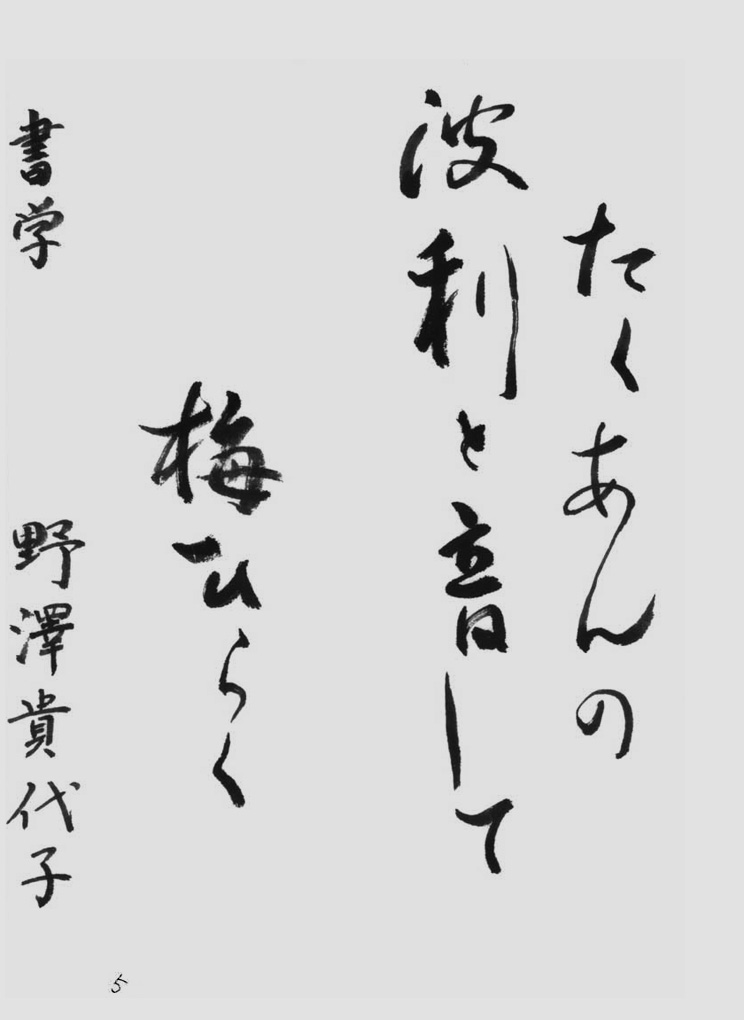 たくあんの
波利と音して
梅ひらく
書学 野澤貴代子
5